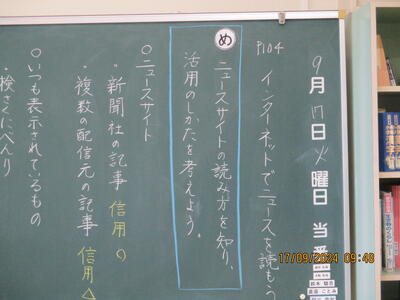 9月17日火曜日 当番
P104 インターネットでニュースを読もう
め
ニュースサイトの読み方を知り、
活用のしかたを考えよう。
○ニュースサイト
・新聞社の記事 信用○
・複数の配信元の記事 信用△
○いつも表示されているもの
・検さくにべんり
17/09/2024 09:48